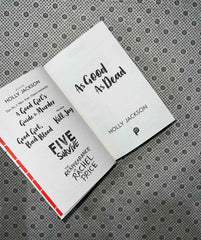 HOLLY JACKSON
A Good Girl's
Guide to Murder
Good Girl,
Bad Blood
Kill Joy
FIVE
SURVIVE
THE REAPPEARANCE
OF
RACHEL
PRICE
As Good
As Dead
HOLLY JACKSON